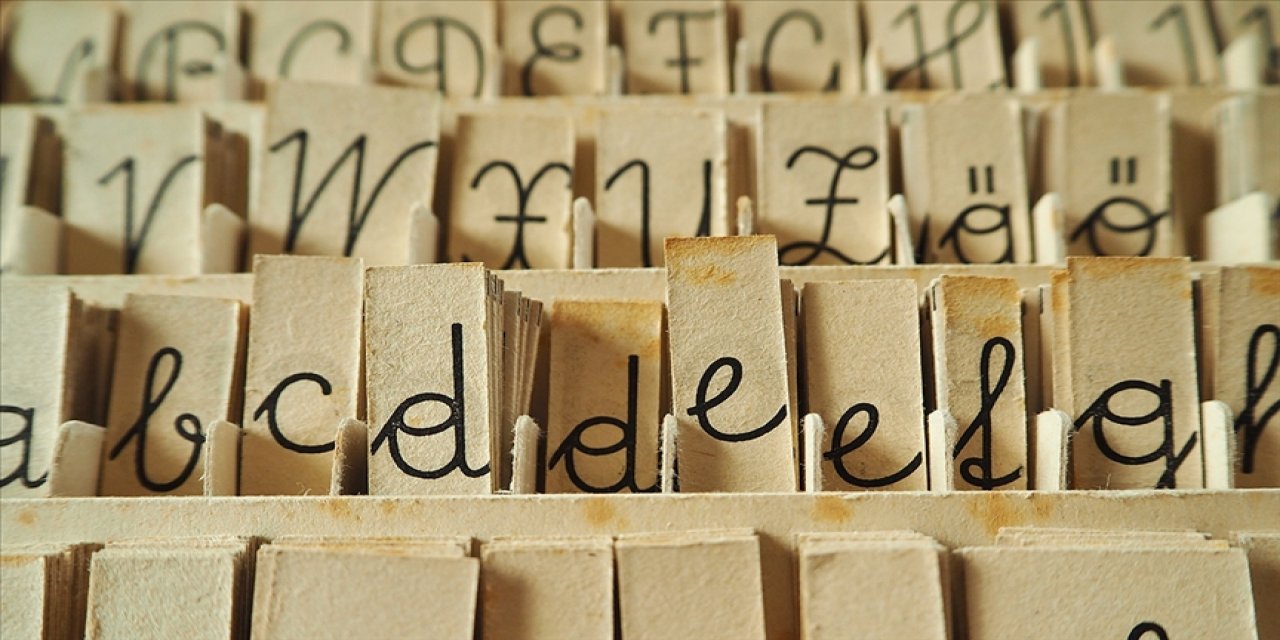 B C D E F G H
V W X Y Z ä ö
a b c d d e e f g h